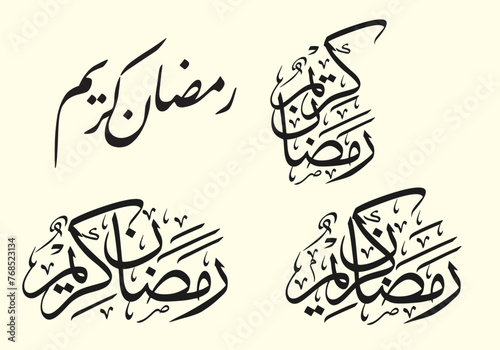 رمضان كريم
رَمَضَان كَرِيْم
رَمَضَان كَرِيْم
رَمَضَان كَرِيْم
Adobe Stock
768523134